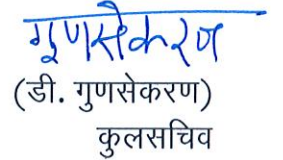 गुणसेकरण
(डी. गुणसेकरण)
कुलसचिव